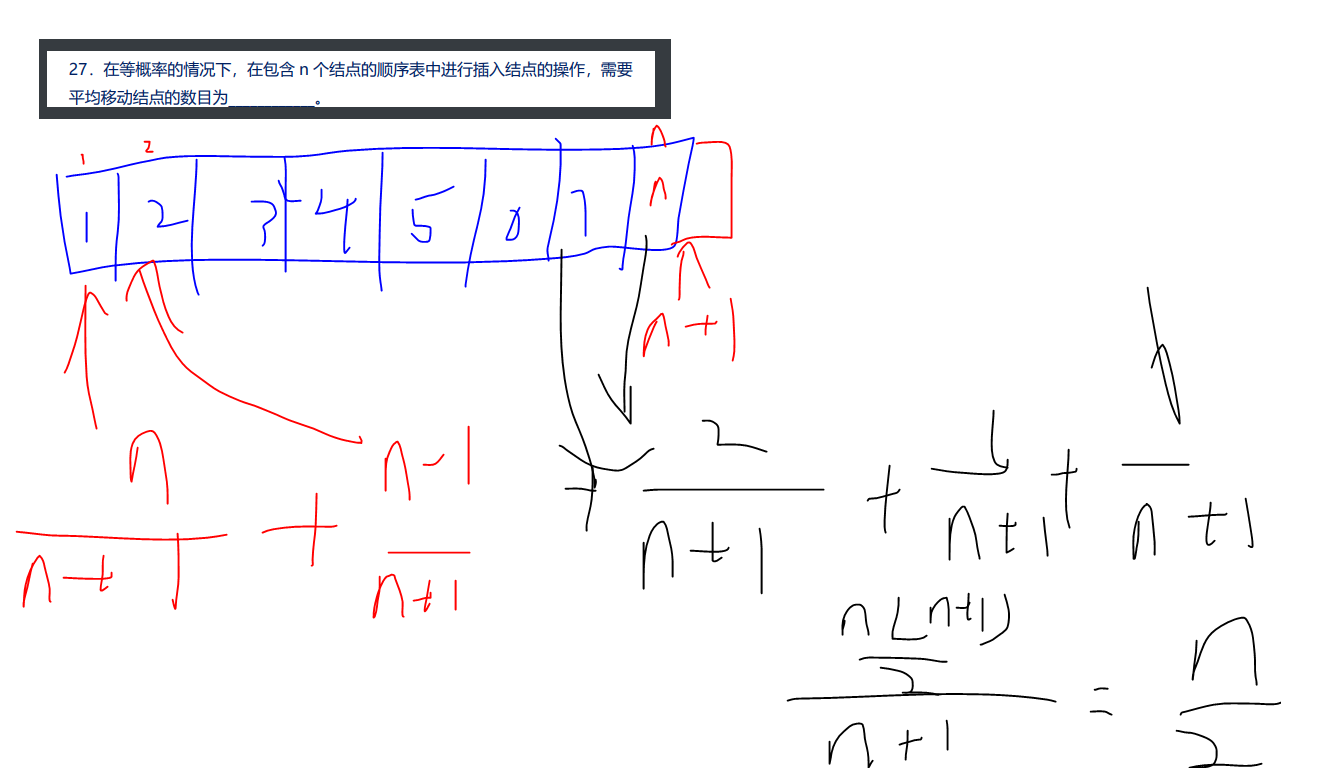 27．在等概率的情况下，在包含 n 个结点的顺序表中进行插入结点的操作，需要
平均移动结点的数目为__________。
1 2 n
1 2 3 4 5 7 n
n+1
n n-1 2 1
+ + + +
n+1 n+1 n+1 n+1 n+1
n(n+1)
2 n
=
n+1 2